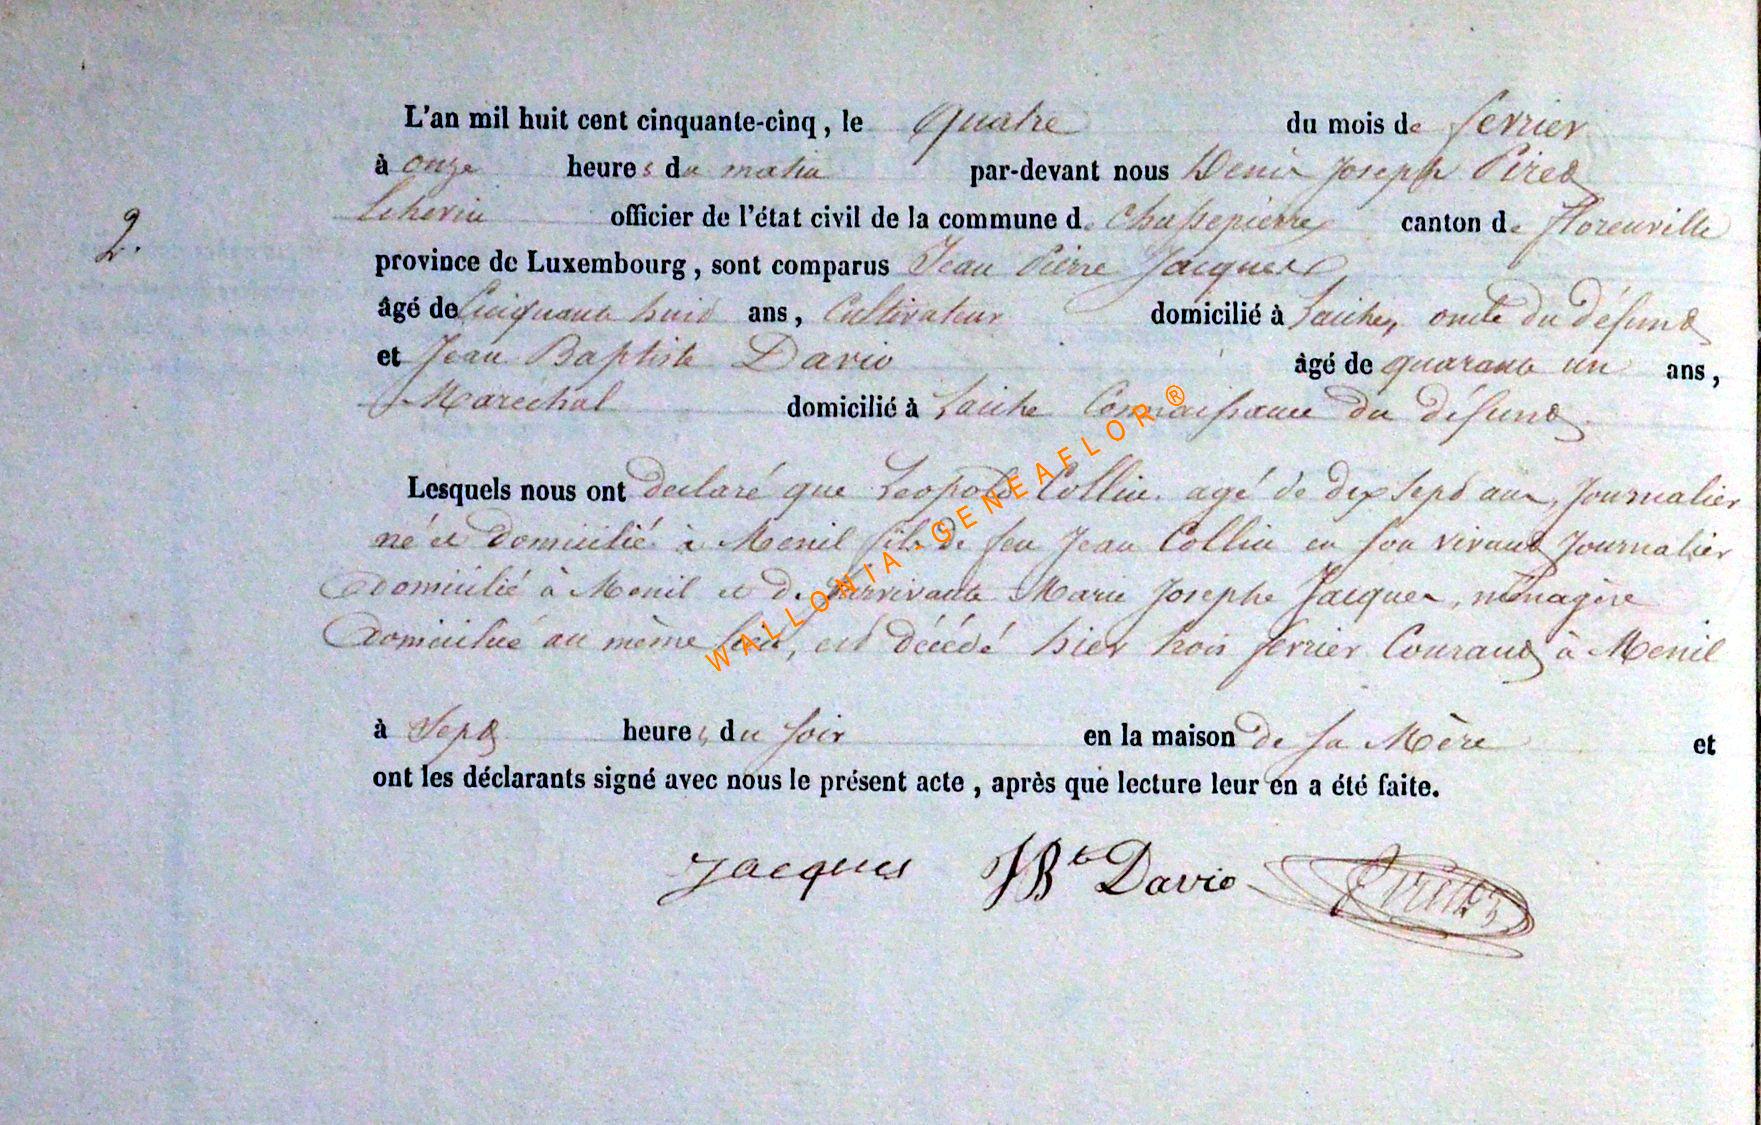 L'an mil huit cent cinquante-cinq, le quatre du mois de ferrier
à onze heures du matin par-devant nous Denis Joseph Piret
Echevin officier de l'état civil de la commune de Chassepierre canton de florenville
province de Luxembourg, sont comparus Jean Pierre Jacques
âgé de Cinquante huit ans, Cultivateur domicilié à Laiche, oncle du défunt
et Jean Baptiste Davio âgé de quarante un ans,
Maréchal domicilié à Laiche Connaissance du défunt
2.
Lesquels nous ont declaré que Leopold Collin agé de dix sept ans, Journalier
né et domicilié à Menil fils de feu Jean Collin en son vivant Journalier
domicilié à Menil et de survivante Marie Josephe Jacques, ménagère
domiciliée au même lieu, est décédé hier trois ferrier Courant à Menil
à Sept heures du soir en la maison de sa Mère et
ont les déclarants signé avec nous le présent acte, après que lecture leur en a été faite.
Jacques JBte Davio
WALLONIA-GENEAFLOR®